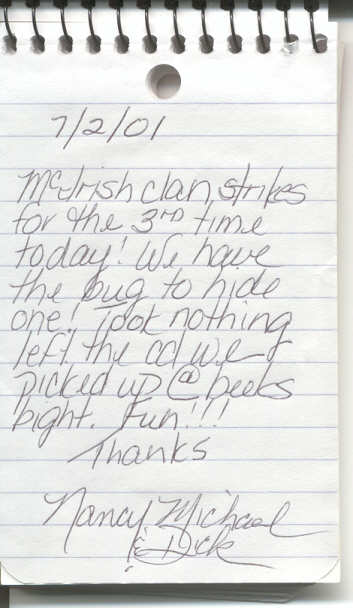 7/2/01
McIrish clan strikes
for the 3RD time
today! We have
the bug to hide
one! Took nothing
left the cd we
picked up @ beeks
bight. Fun!!!
Thanks
Nancy Michael
& Dick